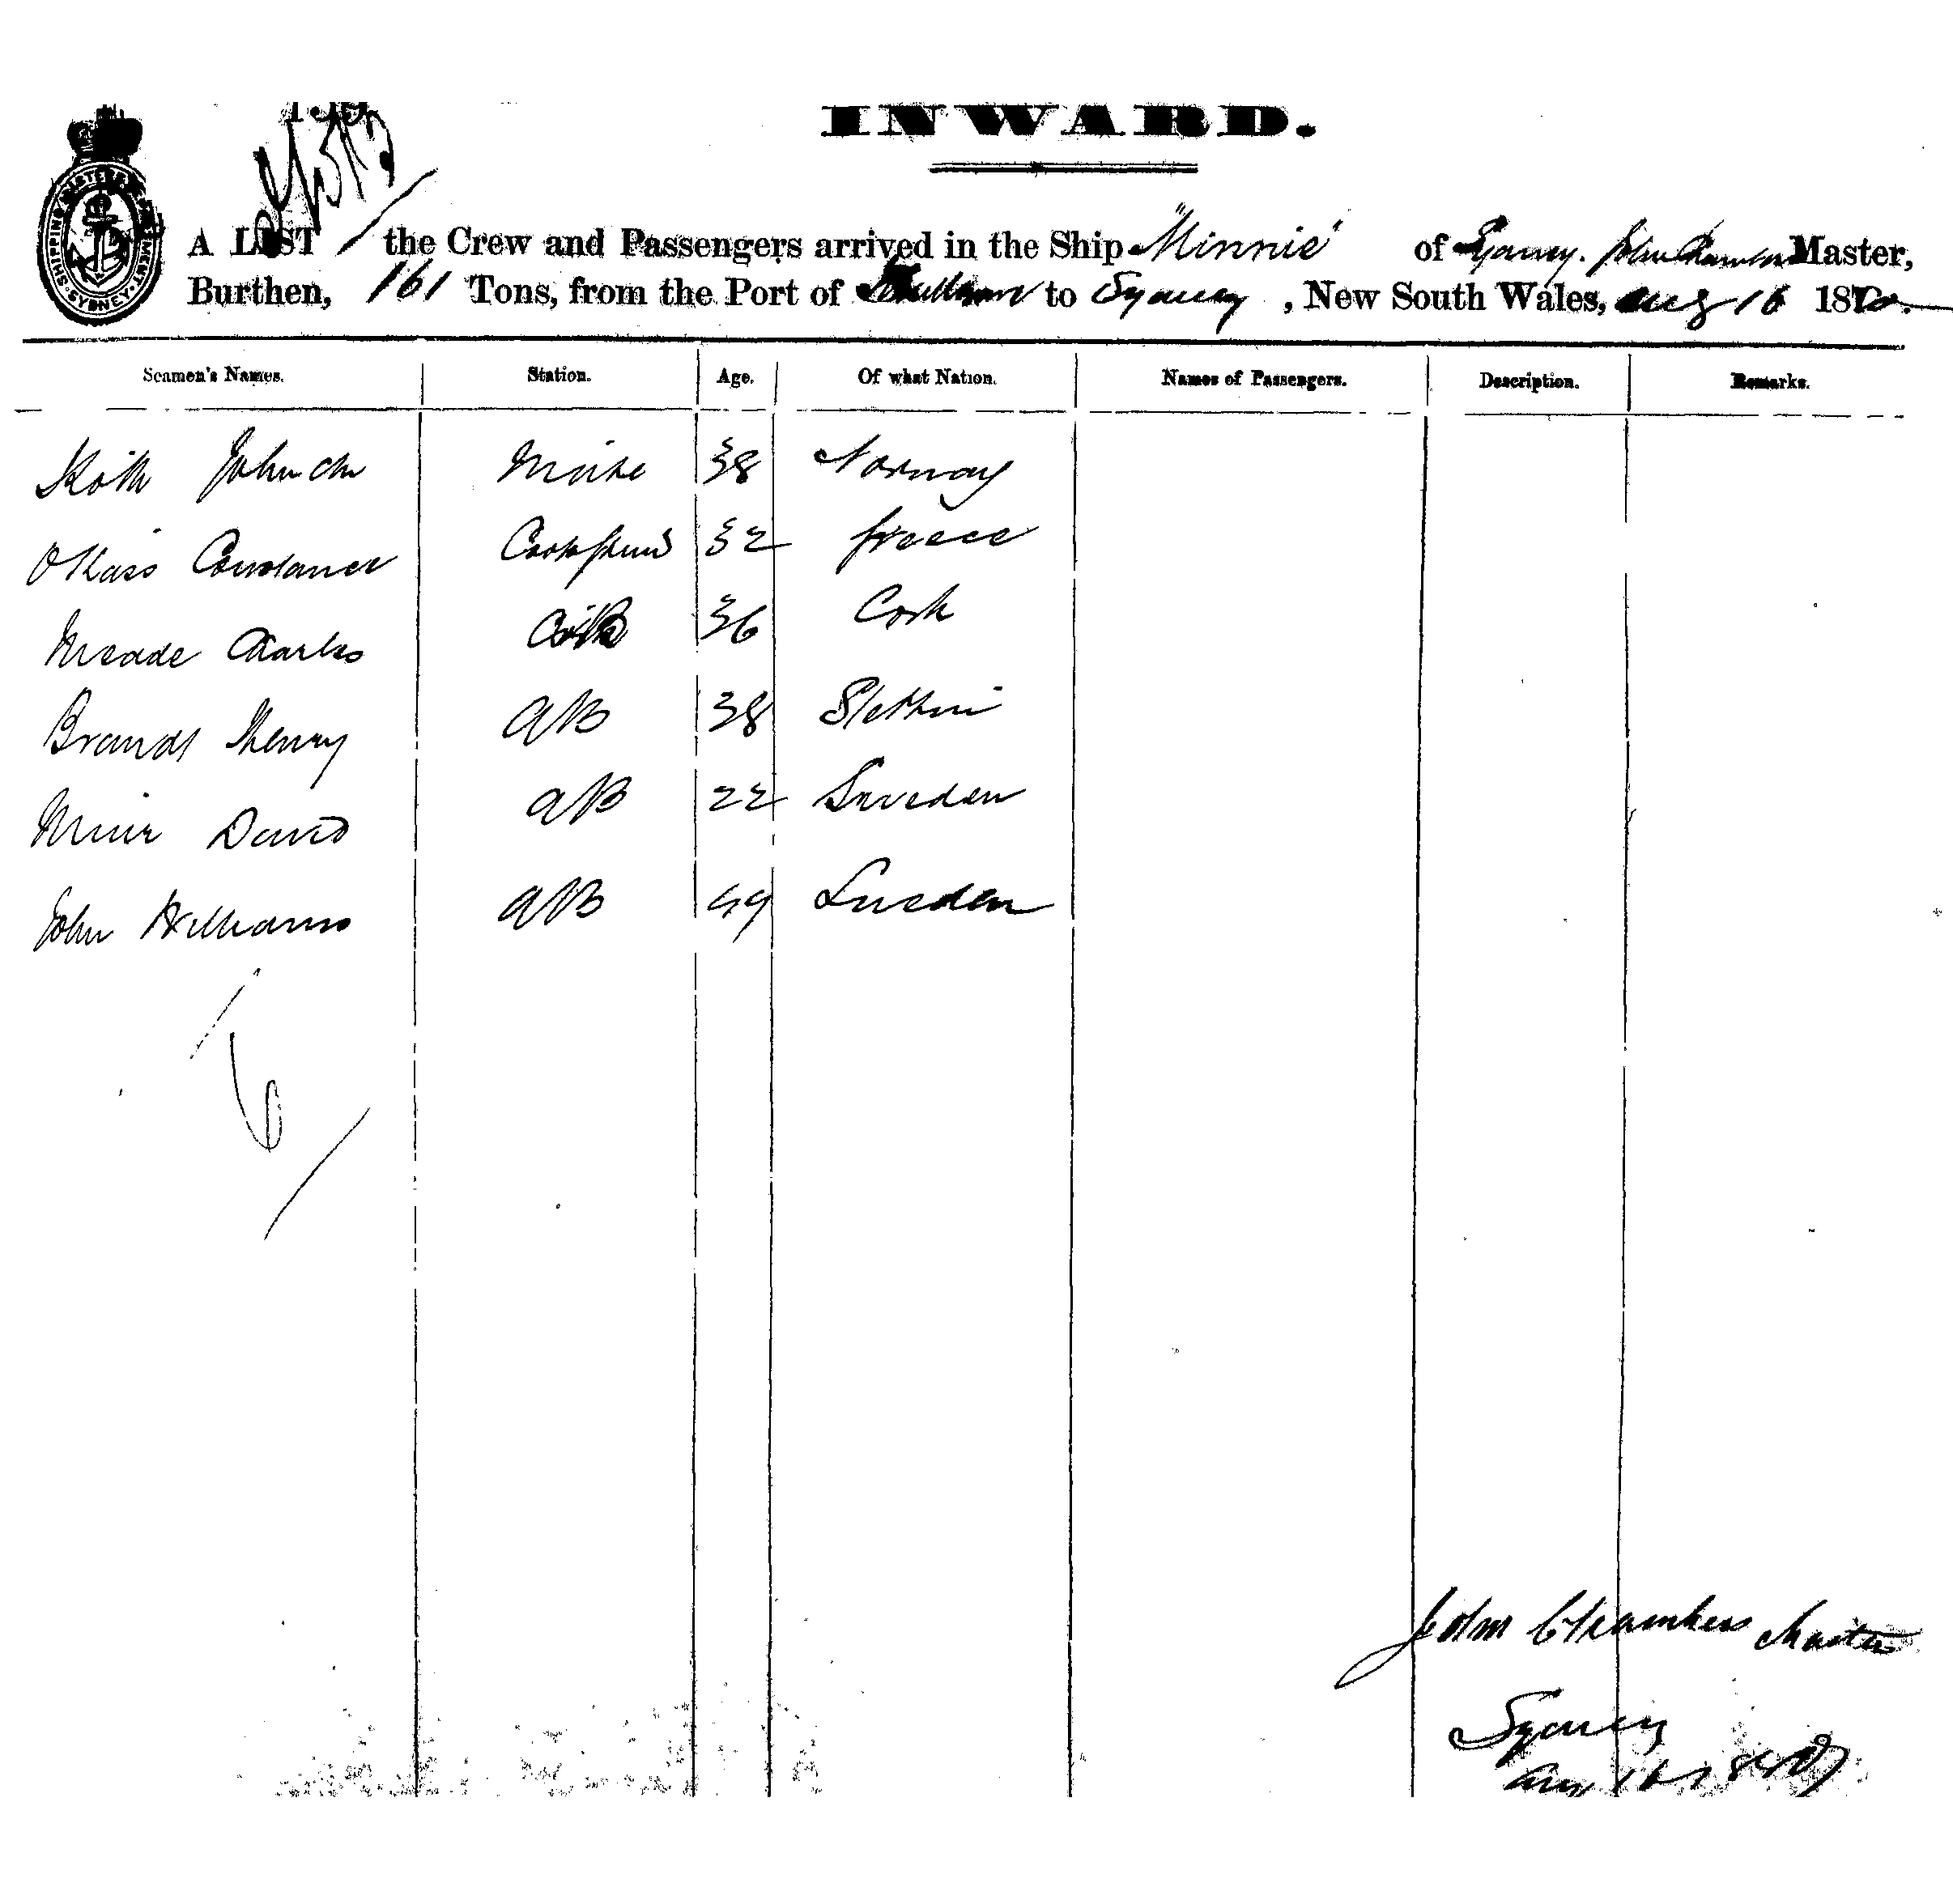 INWARD.
A LIST the Crew and Passengers arrived in the Ship "Minnie" of Sydney. John Chambers Master,
Burthen, 161 Tons, from the Port of to Sydney, New South Wales, Aug 16 1870.
Seamen's Names. Station. Age. Of what Nation. Names of Passengers. Description. Remarks.
John 38 Norway
32 Greece
Meade Charles 36 Cork
Brandt Henry AB 38 Stettin
Muir David AB 22 Sweden
John Williams AB 49 Sweden
6
John Chambers Master
Sydney
Aug 16 1870